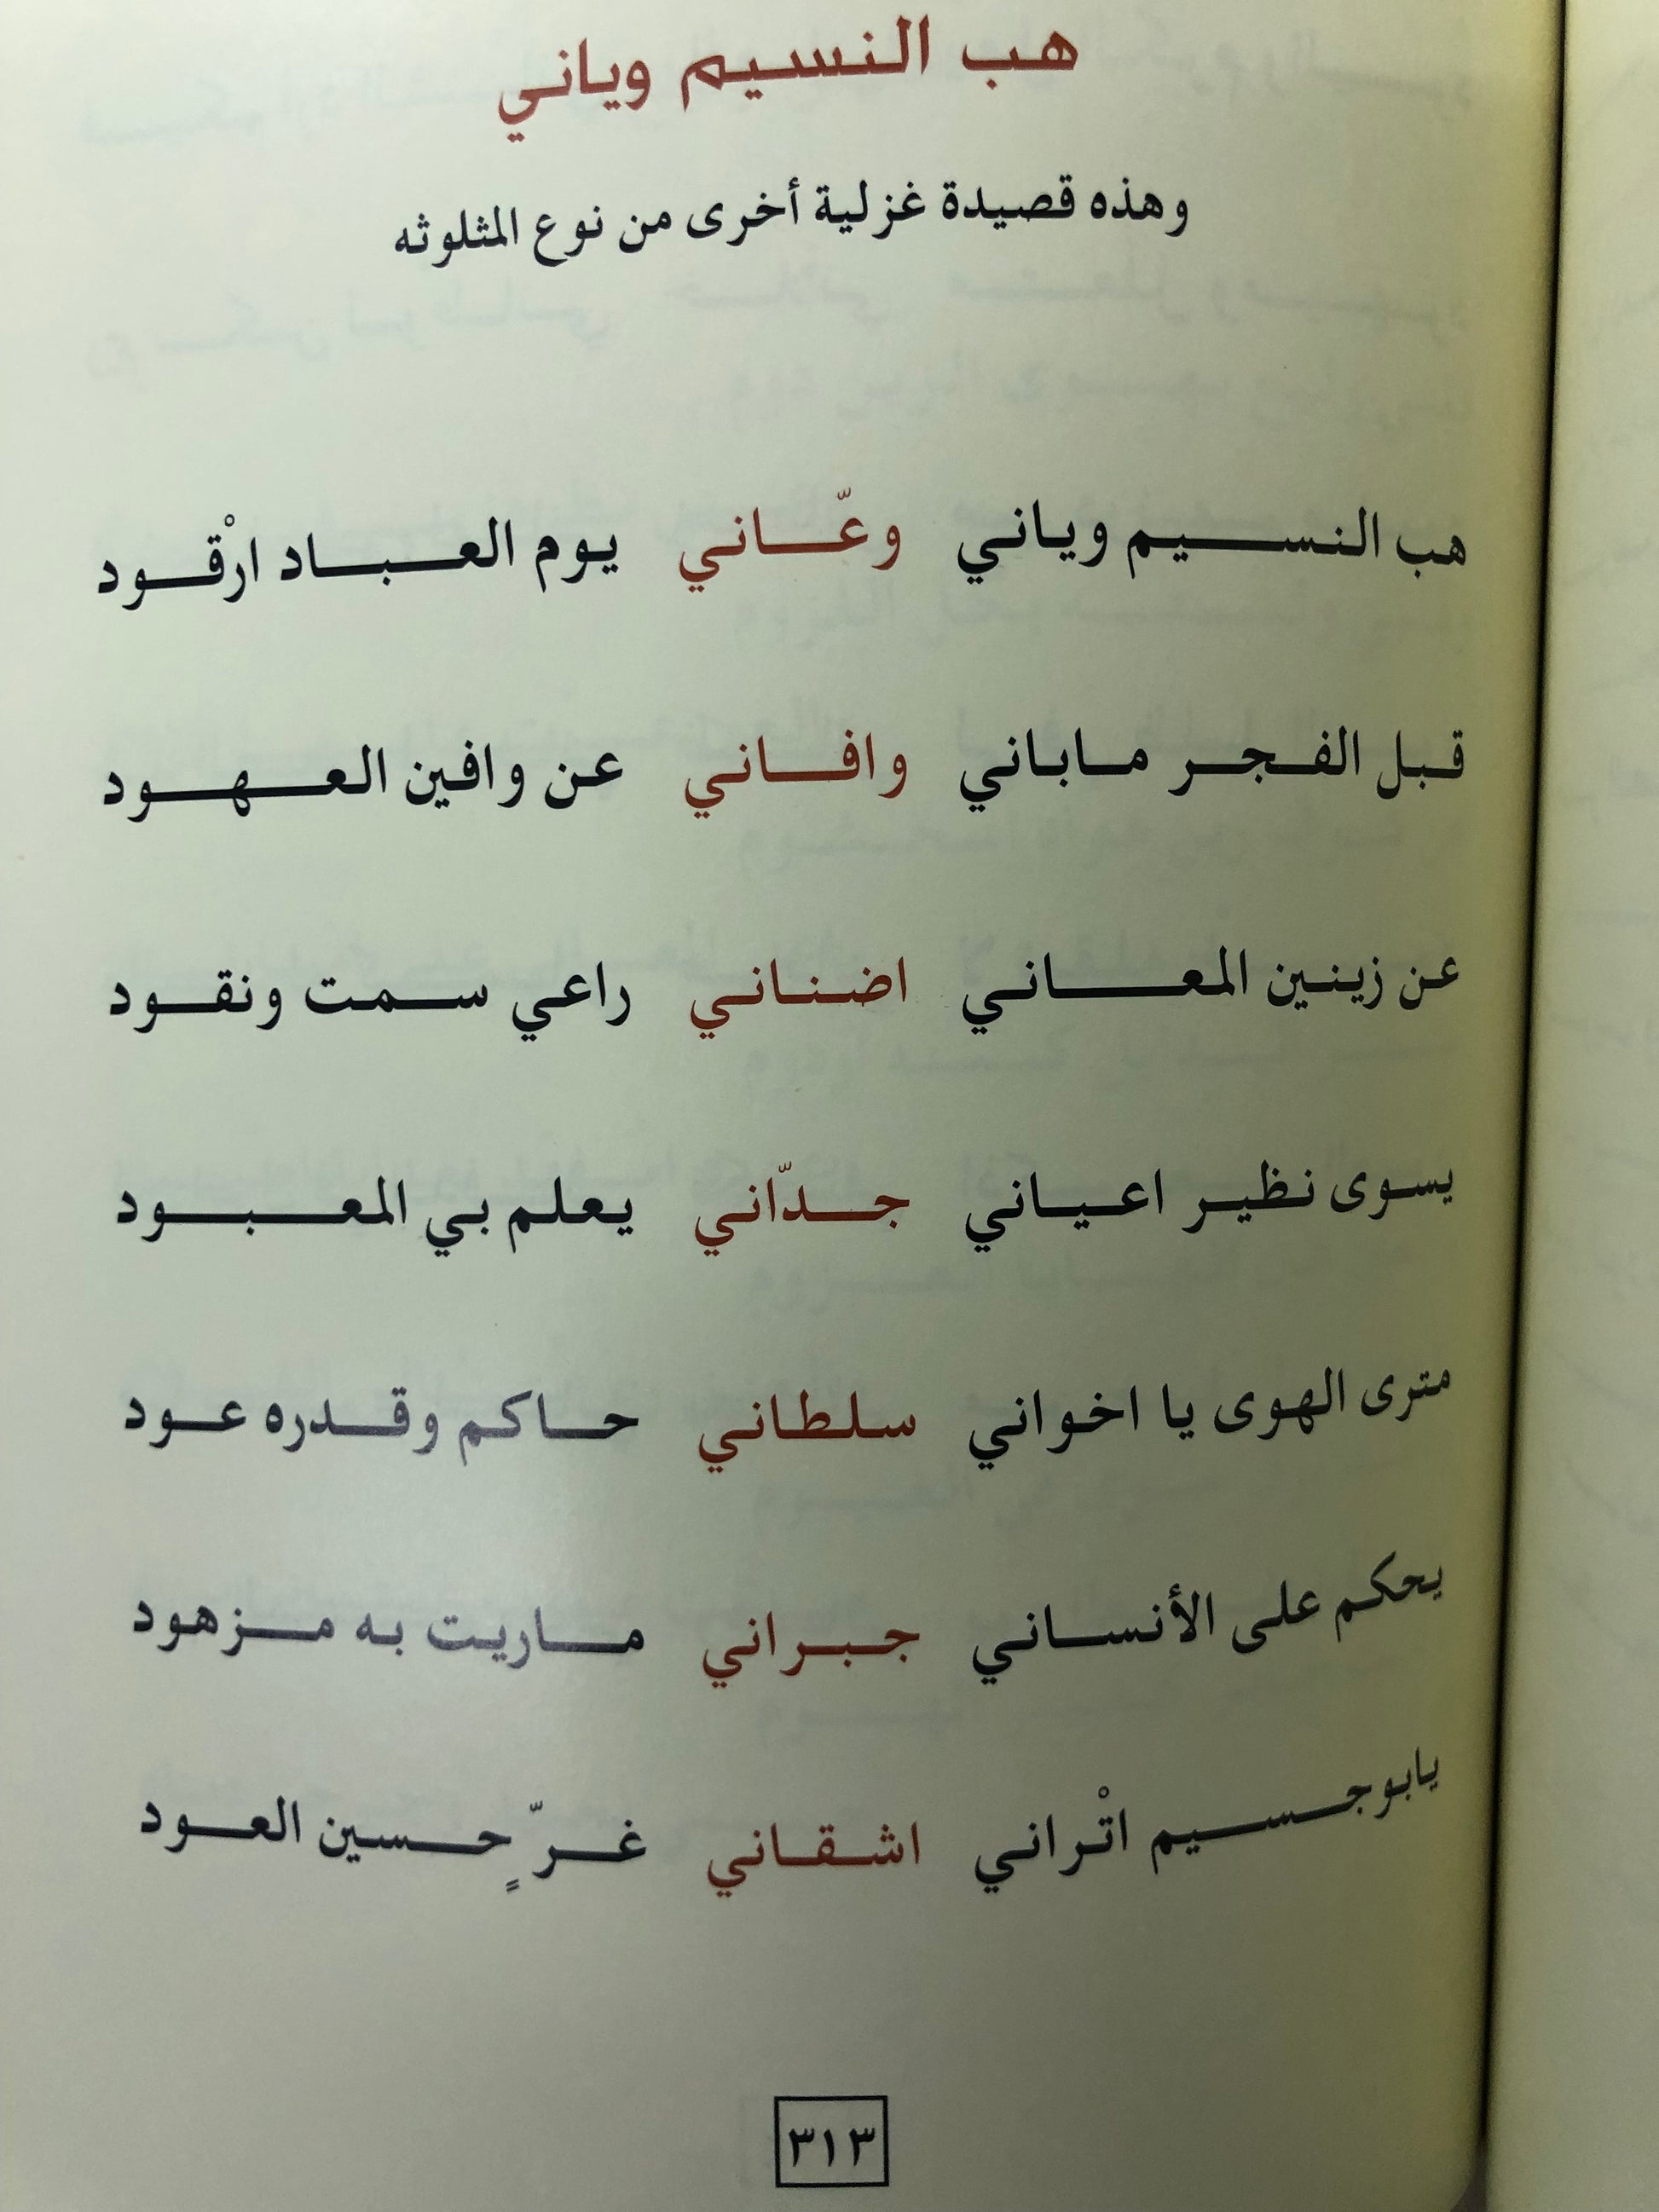 هب النسيم وياني
وهذه قصيدة غزلية أخرى من نوع المثلوثه
هب النسيم وياني وعّاني يوم العباد ارْقود
قبل الفجر ماباني وافاني عن وافين العهود
عن زينين المعاني اضناني راعي سمت ونقود
يسوى نظير اعياني جدّاني يعلم بي المعبود
مترى الهوى يا اخواني سلطاني حاكم وقدره عود
يحكم على الأنساني جبراني ماريت به مزهود
يابوجسيم اتْراني اشقاني غرٍّ حسين العود
٣١٣